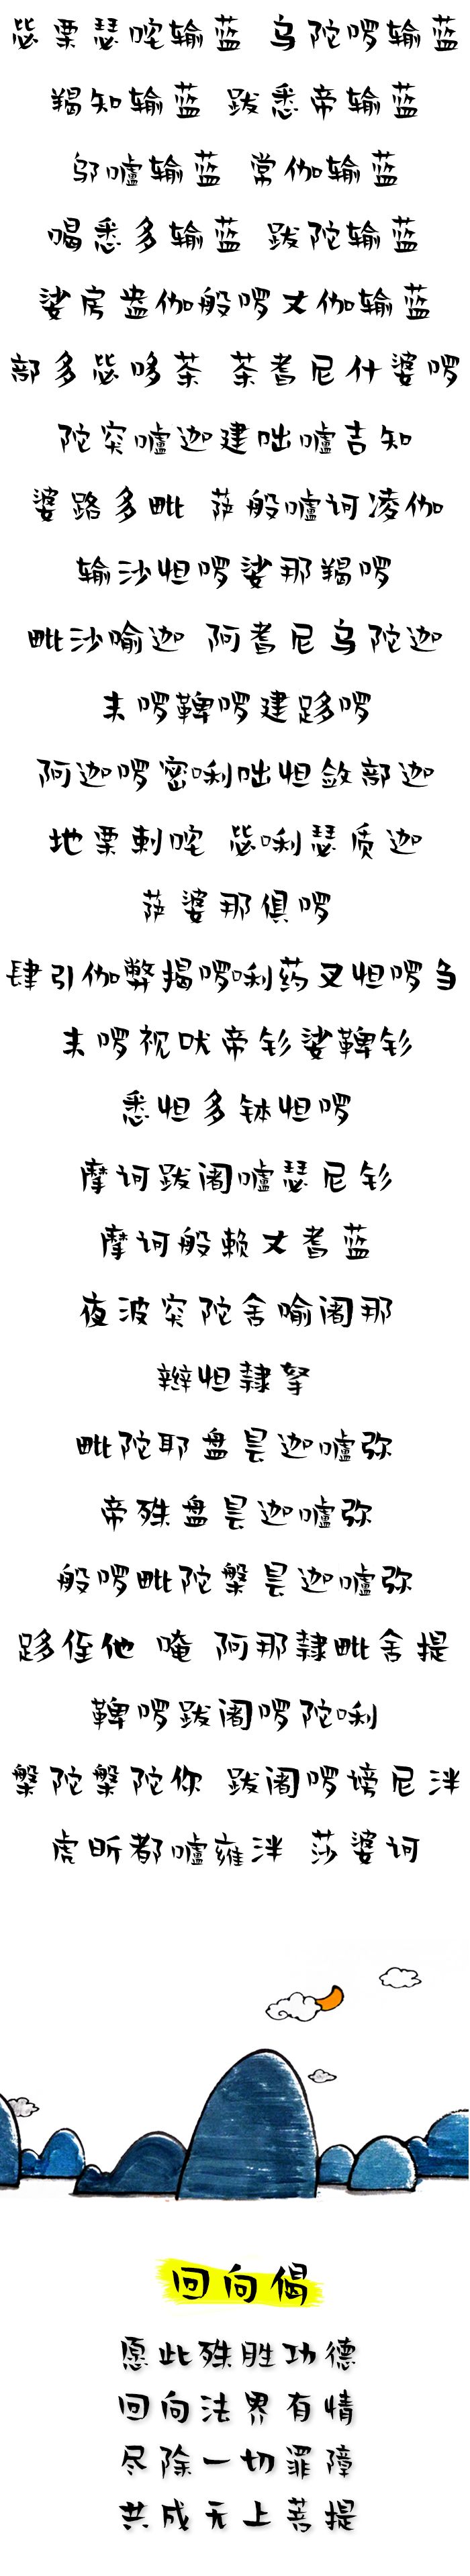 毖栗瑟咤输蓝 乌陀啰输蓝
羯知输蓝 跋悉帝输蓝
邬嚧输蓝 常伽输蓝
喝悉多输蓝 跋陀输蓝
娑房盎伽般啰丈伽输蓝
部多毖哆茶 茶耆尼什婆啰
陀突嚧迦建咄嚧吉知
婆路多毗 萨般嚧诃凌伽
输沙怛啰娑那羯啰
毗沙喻迦 阿耆尼乌陀迦
末啰鞞啰建跢啰
阿迦啰密唎咄怛敛部迦
地栗剌咤 毖唎瑟质迦
萨婆那俱啰
肆引伽弊揭啰唎药叉怛啰刍
末啰视吠帝钐娑鞞钐
悉怛多钵怛啰
摩诃跋阇嚧瑟尼钐
摩诃般赖丈耆蓝
夜波突陀舍喻阇那
辫怛隶拏
毗陀耶盘昙迦嚧弥
帝殊盘昙迦嚧弥
般啰毗陀槃昙迦嚧弥
跢侄他 唵 阿那隶毗舍提
鞞啰跋阇啰陀唎
槃陀槃陀你 跋阇啰谤尼泮
虎昕都嚧雍泮 莎婆诃
回向偈
愿此殊胜功德
回向法界有情
尽除一切罪障
共成无上菩提